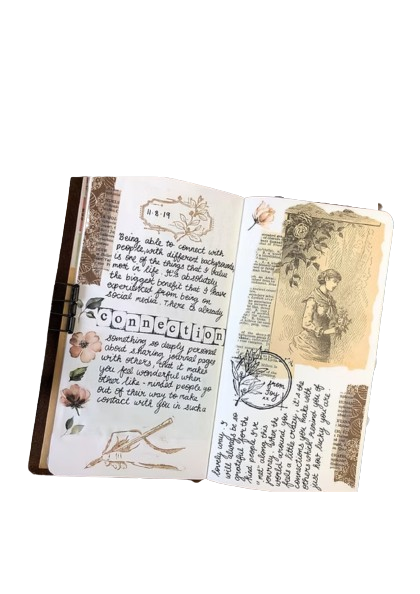 11.8.19
Being able to connect with
people, with different backgrounds
is one of the things that I value
most in life. It's absolutely
the biggest benefit that I have
experienced from being on
social media. There is already
connection
something so deeply personal
about sharing journal pages
with others, that it makes
you feel wonderful when
other like-minded people go
out of their way to make
contact with you in such a
lovely way. I
will always be so
grateful for the
kind people I've
"met" along the
journey. When the
world around you
feels a little crazy, it's the
connections you make with
others which remind you of
just how lucky you are